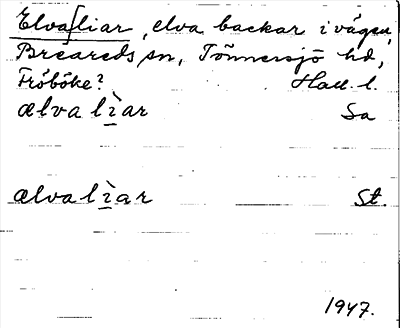 Elva/liar, elva backar i vägen,
Breareds sn, Tönnersjö hd,
Fröböke? Hall. l.
ælvalìar Sa
ælvalìar St.
1947.